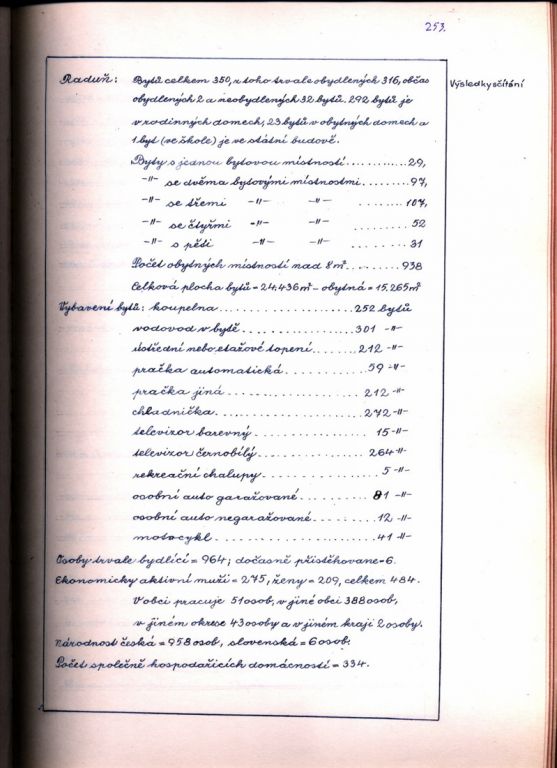 253.
Výsledky sčítání
Raduň: Bytů celkem 350, z toho trvale obydlených 316, občas
obydlených 2 a neobydlených 32 bytů. 292 bytů je
v rodinných domech, 23 bytů v obytných domech a
1 byt (ve škole) je ve státní budově.
Byty s jednou bytovou místností .............. 29,
-"- se dvěma bytovými místnostmi ........ 97,
-"- se třemi -"- -"- ........ 107,
-"- se čtyřmi -"- -"- ........ 52
-"- s pěti -"- -"- ........ 31
Počet obytných místností nad 8 m² ......... 938
Celková plocha bytů = 24.436 m² - obytná = 15.265 m²
Vybavení bytů: koupelna ..................... 252 bytů
vodovod v bytě ................. 301 -"-
ústřední nebo etažové topení ....... 212 -"-
pračka automatická ............ 59 -"-
pračka jiná ..................... 212 -"-
chladnička ..................... 272 -"-
televizor barevný ................ 15 -"-
televizor černobílý ............... 264 -"-
rekreační chalupy ................ 5 -"-
osobní auto garažované .......... 81 -"-
osobní auto negaražované ......... 12 -"-
motocykl ....................... 41 -"-
Osoby trvale bydlící = 964; dočasně přistěhované = 6.
Ekonomicky aktivní muži = 275, ženy = 209, celkem 484.
V obci pracuje 51 osob, v jiné obci 388 osob,
v jiném okrese 43 osoby a v jiném kraji 2 osoby.
Národnost česká = 958 osob, slovenská = 6 osob.
Počet společně hospodařících domácností = 334.